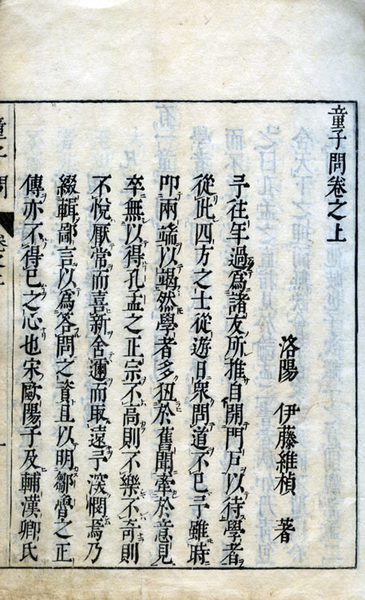 童子問卷之上
洛陽 伊藤維楨 著
予往年過為諸友所推自開門戶以待學者
從此四方之士從遊日衆問道不已予雖時
叩兩端以竭然學者多狃於舊聞牽於意見
卒無以得孔孟之正宗不高則不樂不奇則
不悅厭常而喜新舍邇而取遠予深憫焉乃
綴輯鄙言以為答問之資且以明鄒魯之正
傳亦不得已之心也宋歐陽子及輔漢卿氏
童子問 卷之上